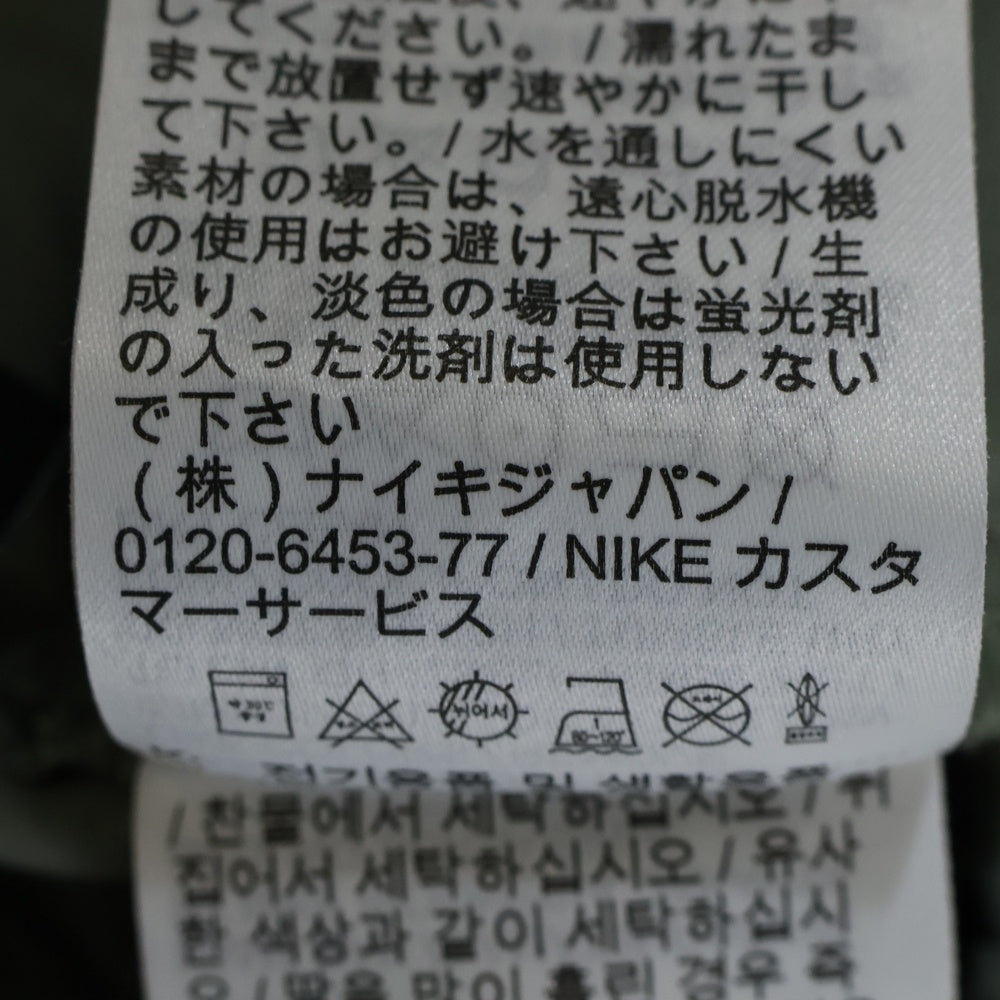 してください。/ 濡れたま
まで放置せず速やかに干し
て下さい。/ 水を通しにくい
素材の場合は、遠心脱水機
の使用はお避け下さい / 生
成り、淡色の場合は蛍光剤
の入った洗剤は使用しない
で下さい
(株)ナイキジャパン /
0120-6453-77 / NIKE カスタ
マーサービス
뉘어서 1 80~120°
/ 찬물에서 세탁하십시오 / 뒤
집어서 세탁하십시오 / 유사
한 색상과 같이 세탁하십시
오 / 땀을 많이 흘린 경우 즉